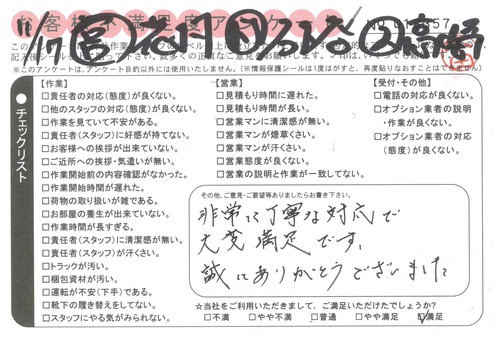 お客様不満足度アンケート
※このアンケートは、アンケート目的以外には使用いたしません。(※情報保護シールは1度はがすと、再度貼りなおすことはできません)
チェックリスト
【作業】
□責任者の対応(態度)が良くない。
□他のスタッフの対応(態度)が良くない。
□作業を見ていて不安がある。
□責任者(スタッフ)に好感が持てない。
□お客様への挨拶が出来ていない。
□ご近所への挨拶・気遣いが無い。
□作業開始前の内容確認がなかった。
□作業開始時間が遅れた。
□荷物の取り扱いが雑である。
□お部屋の養生が出来ていない。
□作業時間が長すぎる。
□責任者(スタッフ)に清潔感が無い。
□責任者(スタッフ)が汗くさい。
□トラックが汚い。
□梱包資材が汚い。
□運転が不安(下手)である。
□靴下の履き替えをしてない。
□スタッフにやる気がみられない。
【営業】
□見積もり時間に遅れた。
□見積もり時間が長い。
□営業マンに清潔感が無い。
□営業マンが煙草くさい。
□営業マンが汗くさい。
□営業態度が良くない。
□営業の説明と作業が一致してない。
【受付・その他】
□電話の対応が良くない。
□オプション業者の説明
・作業が良くない。
□オプション業者の対応
(態度)が良くない。
その他、ご意見・ご要望等ありましたらお書き下さい。
非常に丁寧な対応で
大変満足です。
誠にありがとうございました
☆当社をご利用いただきまして、ご満足いただけたでしょうか?
□不満 □やや不満 □普通 □やや満足 ☑満足